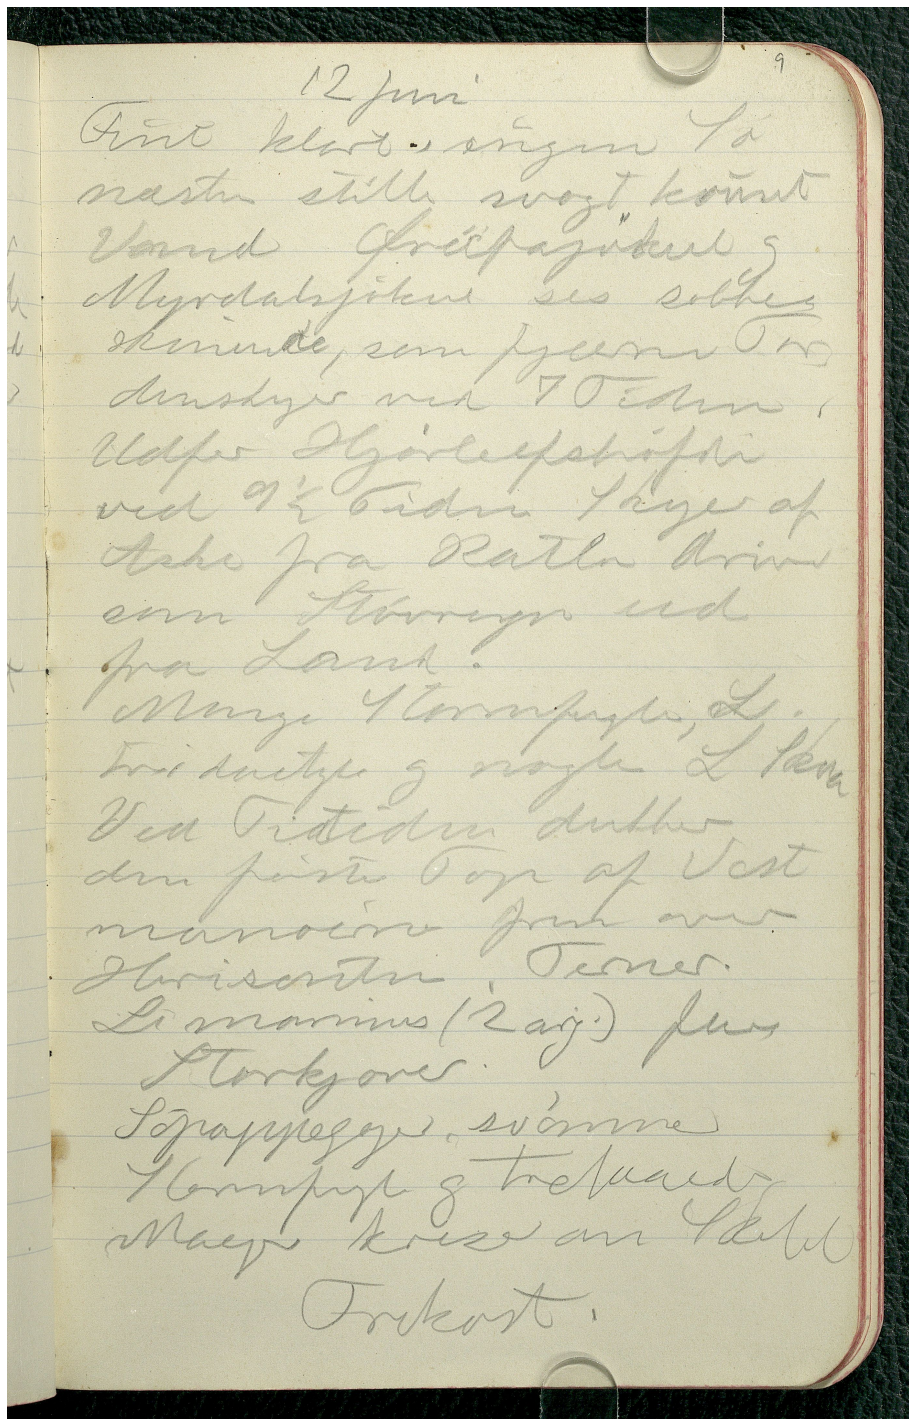 9
12 Juni
Fint klart, ingen Sø
næsten stille svagt kruset
Vand Øræfajökul og
Myrdalsjökul ses solbe
skinnede, som fjerne Tor
denskyer ved 7 Tiden.
Udfor Hjörleifshöfdi
ved 9½ Tiden Skyer af
Aske fra Katla driver
som Støvregn ud
fra Land.
Mange Stormfugle, L.
tridactyla og nogle L Skua
Ved Titiden dukker
den første Top af Vest
manøerne frem over
Horisonten. Terner.
L. marinus (2 arg.) flere
Storkjover.
Søpapegøjer, svømme
Stormfugle og tretaaede
Maager krese om Skibet
Frokost.